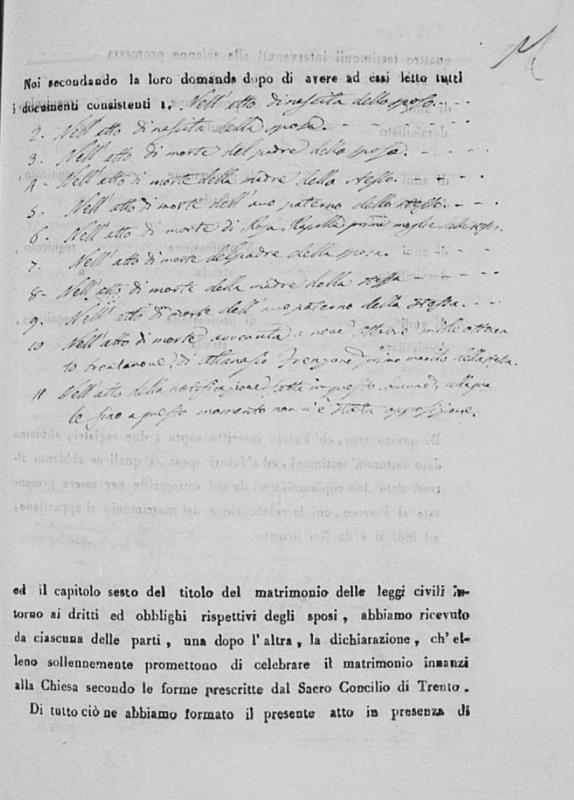 Noi secondando la loro domanda dopo di avere ad essi letto tutti
i documenti consistenti 1. Nell'atto di nascita dello sposo.
2. Nell'atto di nascita della sposa.
3. Nell'atto di morte del padre dello sposo.
4. Nell'atto di morte della madre dello stesso.
5. Nell'atto di morte dell'avo paterno dello stesso.
6. Nell'atto di morte di Rosa prima moglie dello stesso.
7. Nell'atto di morte del padre della sposa.
8. Nell'atto di morte della madre della stessa
9. Nell'atto di morte dell'avo paterno della stessa.
10 Nell'atto di morte avvenuta a nove Ottobre mille ottocen
to trentanove, di Attanasio primo marito della sposa.
11 Nell'atto della notificazione fatta in questo Comune, alla qua
le fino a questo momento non vi è stata opposizione.
ed il capitolo sesto del titolo del matrimonio delle leggi civili in-
torno ai dritti ed obblighi rispettivi degli sposi, abbiamo ricevuto
da ciascuna delle parti, una dopo l'altra, la dichiarazione, ch'el-
leno sollennemente promettono di celebrare il matrimonio innanzi
alla Chiesa secondo le forme prescritte dal Sacro Concilio di Trento.
Di tutto ciò ne abbiamo formato il presente atto in presenza di